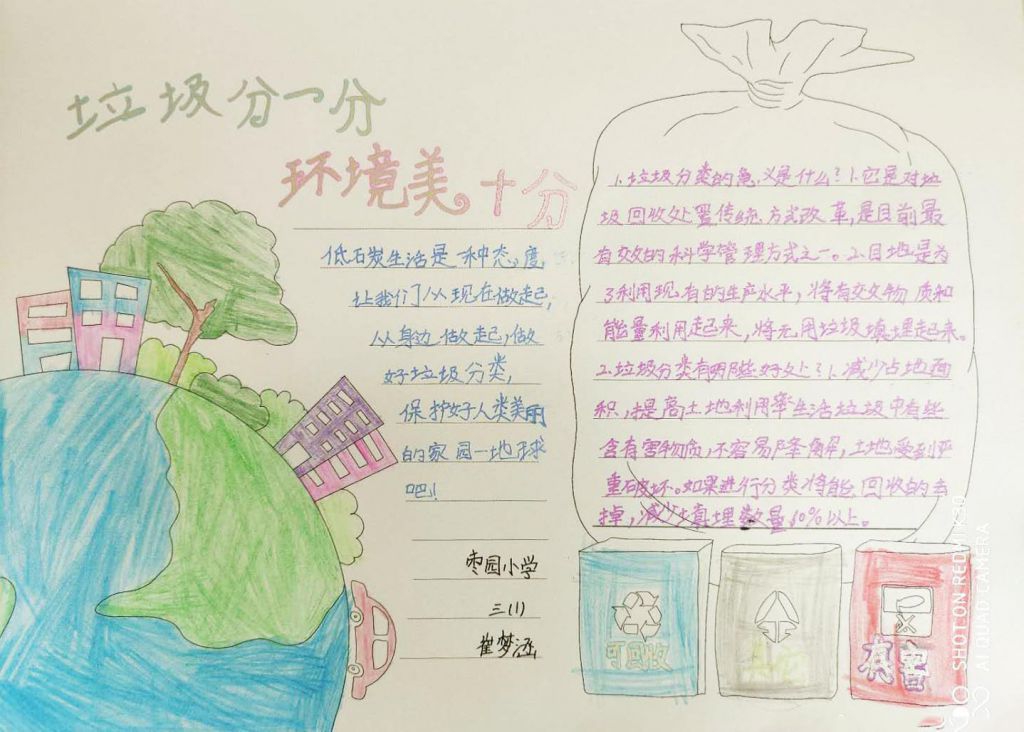 垃圾分一分
环境美十分
低石炭生活是一种态度
让我们从现在做起,
从身边做起,做
好垃圾分类,
保护好人类美丽
的家园一地球
吧!
枣园小学
三(1)
崔梦涵
1.垃圾分类的意义是什么?1.它是对垃
圾回收处置传统方式改革,是目前最
有效的科学管理方式之一。2.目地是为
了利用现有的生产水平,将有效物质和
能量利用起来,将无用垃圾填埋起来。
2.垃圾分类有哪些好处?1.减少占地面
积,提高土地利用率生活垃圾中有些
含有害物质,不容易降解,土地受到严
重破坏。如果进行分类将能回收的去
掉,减少填埋数量60%以上。
可回收
其它
有害
SHOT ON REDMI K30
AI QUAD CAMERA